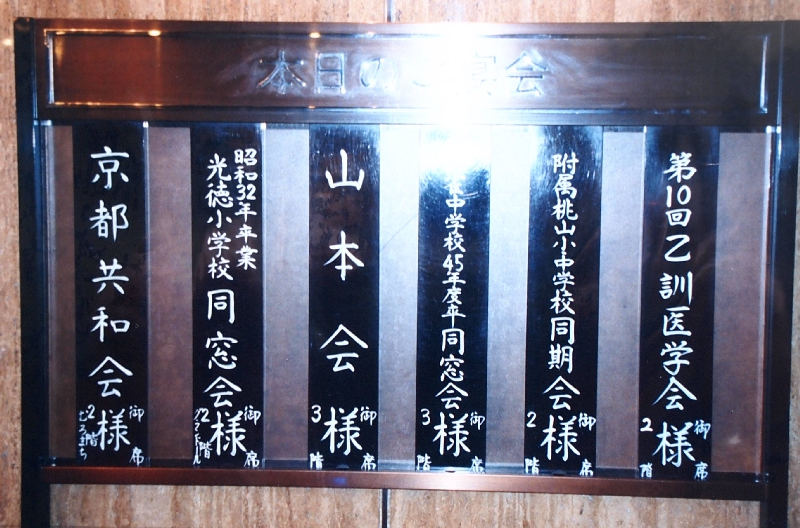 本日のご宴会
第10回乙訓医学会様
御席
2階
附属桃山小中学校同期会様
御席
2階
中学校45年度卒同窓会様
御席
3階
山本会様
御席
3階
昭和32年卒業
光徳小学校同窓会様
御席
2階
京都共和会様
御席
2階
むろまち